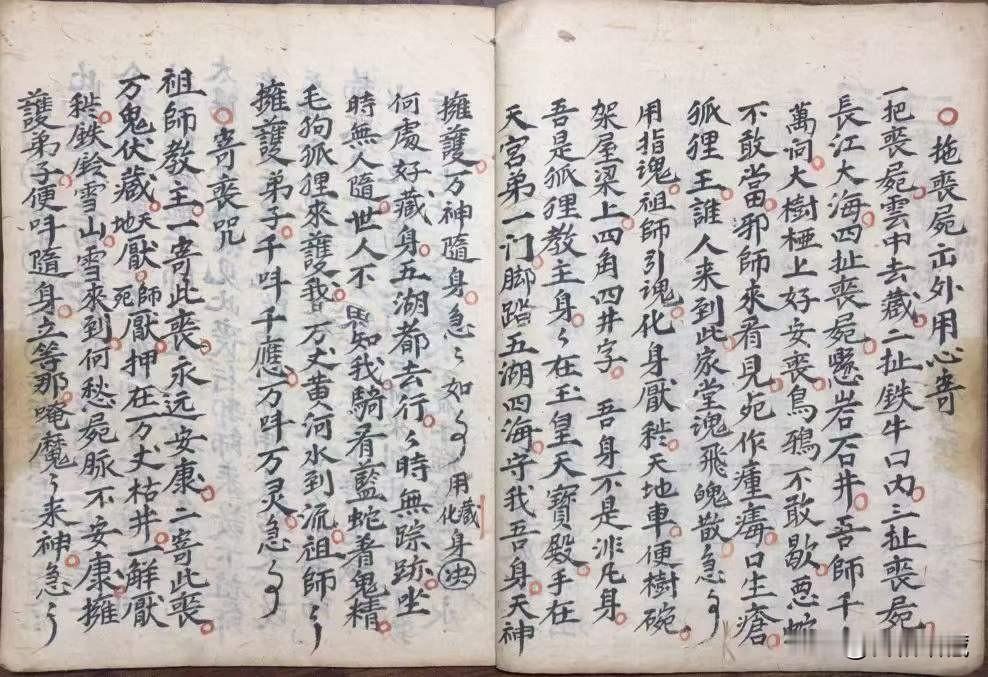 拖喪屍出外用心寄
一把喪屍雲中去藏二扯铁牛口內三扯喪屍
長江大海四扯喪屍懸岩石井吾師千
萬向大樹椏上好安喪鳥鴉不敢歇惡蛇
不敢當邪師來看見死作瘇毒口生瘡
狐狸王誰人来到此家堂魂飛魄散急〻
用指魂祖師引魂化身厭𥘵天地車便樹碗
架屋梁上四角四井字 吾身不是非凡身
吾是狐狸教主身〻在玉皇天寶殿手在
天宮弟一门脚踏五湖四海守我吾身天神
擁護万神隨身急〻如〻 用藏身化 決
何處好藏身五湖都去行〻時無踪跡坐
時無人隨世人不思知我騎看藍蛇着鬼精
毛狗狐狸來護我万丈黄河水到流祖師〻
擁護弟子千呌千應万呌万灵急〻
寄喪咒
祖師教主一寄此喪永远安康二寄此喪
万鬼伏藏地天厭師死厭押在万丈枯井一解厭
𥘵鉄鈴雪山雪來到何愁屍脈不安康擁
護弟子便呌隨身立等那唵魔〻来神急〻